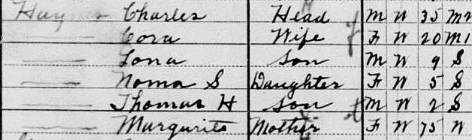 Hay Charles Head M W 35 M2
— Cora Wife F W 20 M1
— Lona Son M W 9 S
— Noma S Daughter F W 5 S
— Thomas H Son M W 2 S
— Margurite Mother F W 75